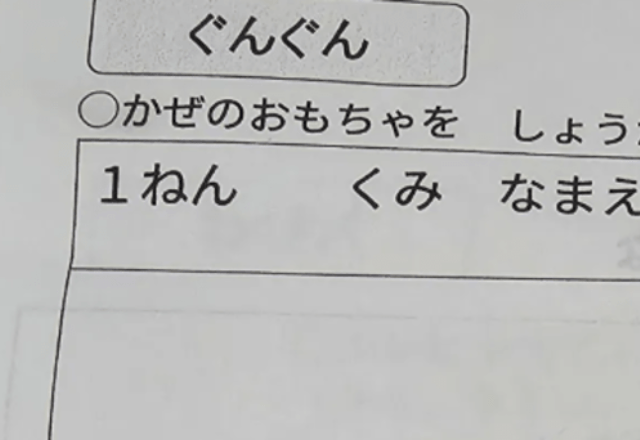 ぐんぐん
○かぜのおもちゃを　しょう
1ねん　　　くみ　なまえ